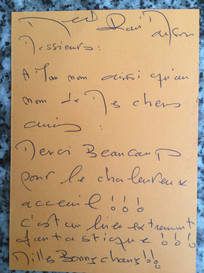 Messieurs :
A Mon nom ainsi qu'au
nom de Mes chers
amis :
Merci Beaucoup
pour le chaleureux
acceuil !!!
C'est un lieu extrement
fantastique !!!
Milles Bonne chance !!!